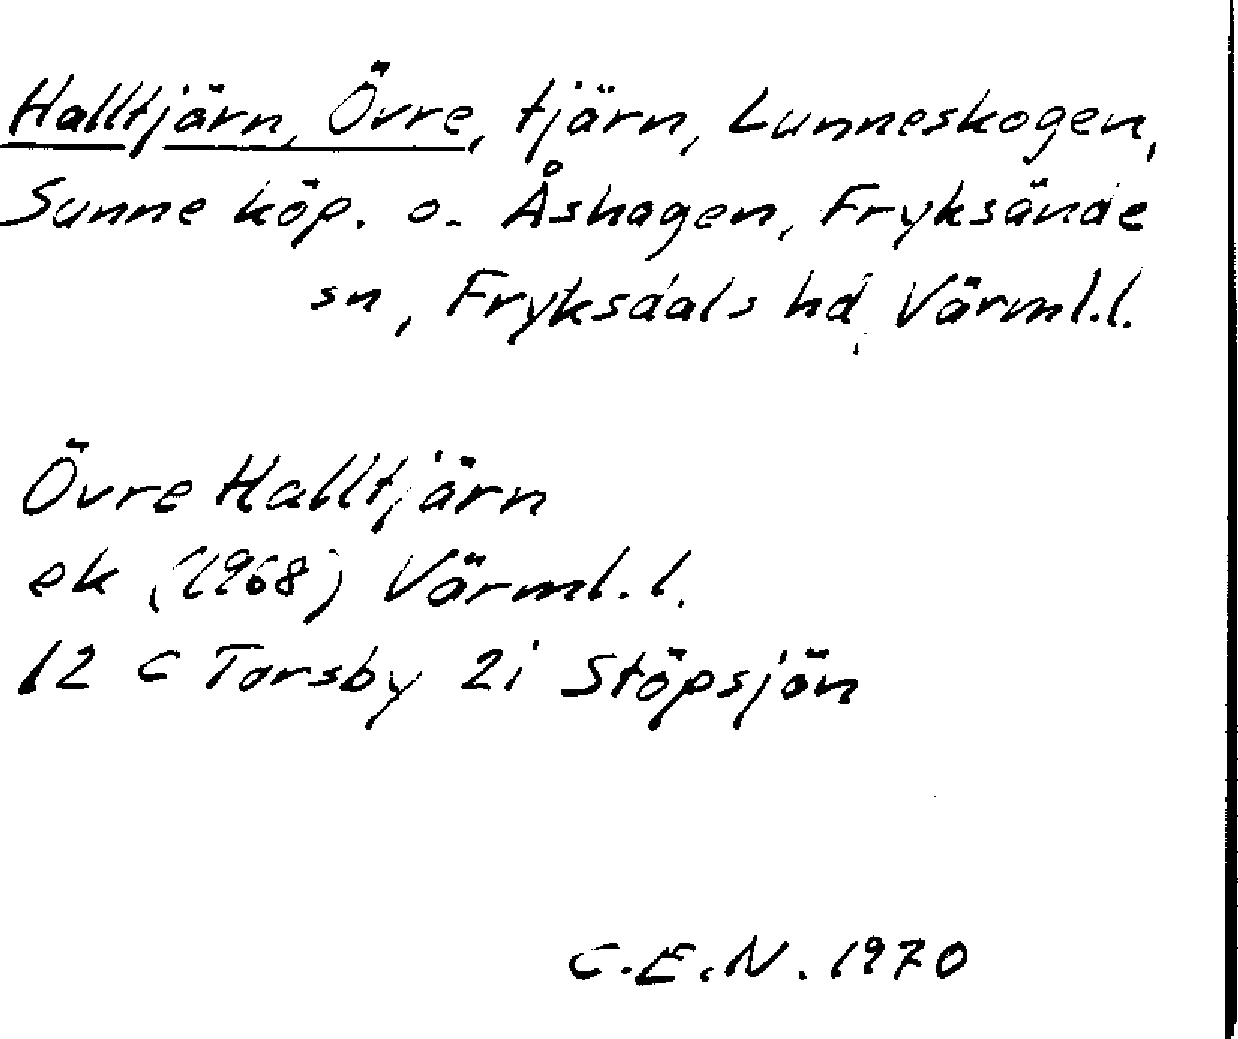 Halltjärn, Övre, tjärn, Lunneskogen,
Sunne köp. o. Åshagen, Fryksände
sn, Fryksdals hd, Värml.l.
Övre Halltjärn
ek (1968) Värml.l.
12 C Torsby 2i Stöpsjön
C.E.N. 1970